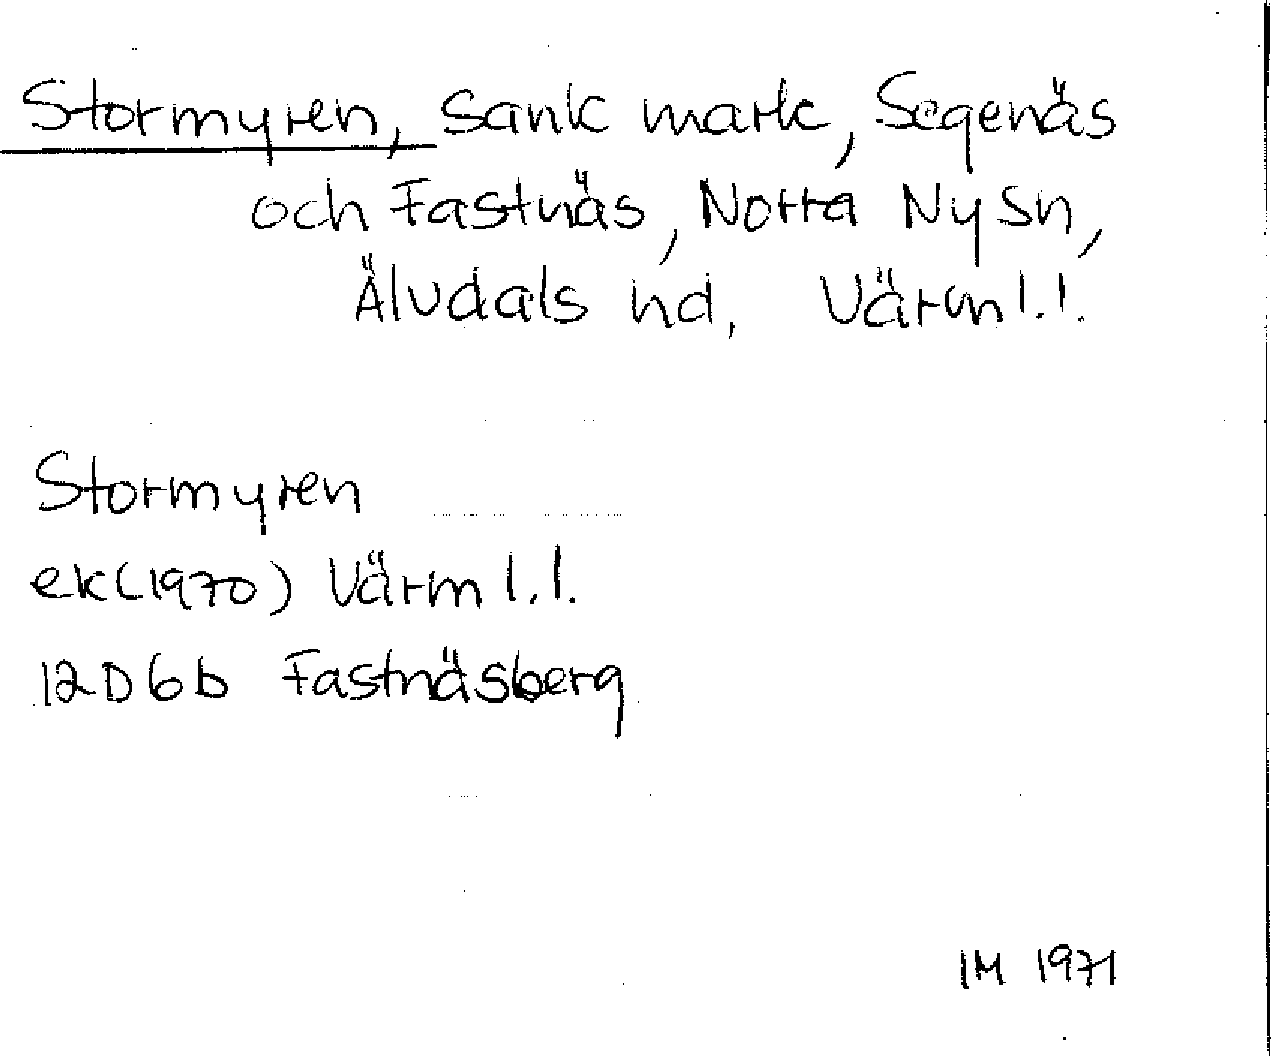 Stormyren, sank mark, Segenäs
och Fastnäs, Norra Ny sn,
Älvdals hd, Värml.l.
Stormyren
ek(1970) Värml.l.
12D6b Fastnäsberg
IM 1971